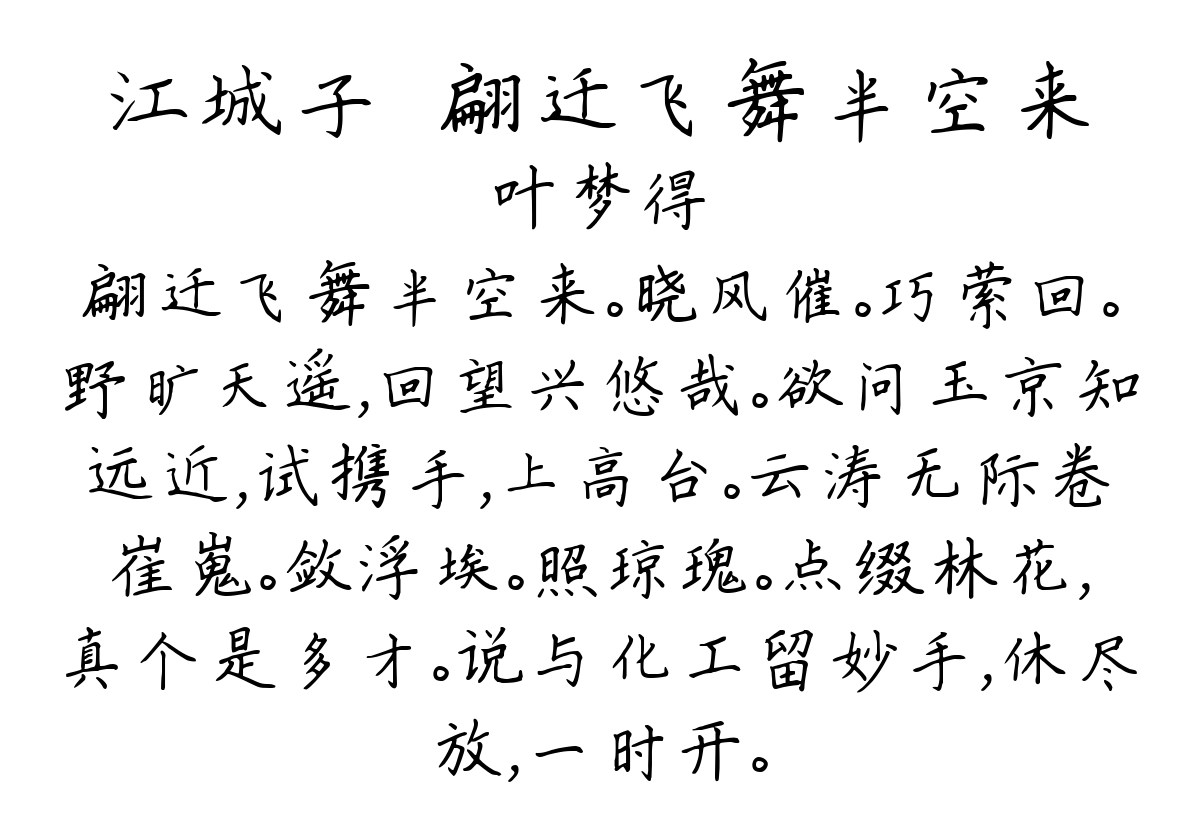 江城子 翩迁飞舞半空来
叶梦得
翩迁飞舞半空来。晓风催。巧萦回。
野旷天遥,回望兴悠哉。欲问玉京知
远近,试携手,上高台。云涛无际卷
崔嵬。敛浮埃。照琼瑰。点缀林花,
真个是多才。说与化工留妙手,休尽
放,一时开。